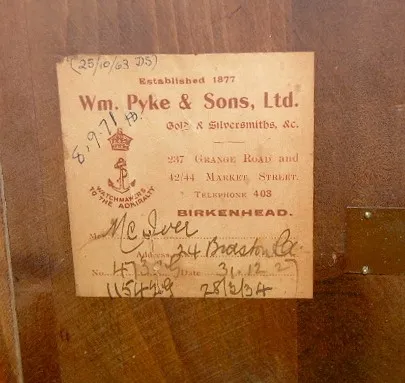 (25/10/63 DS)
Established 1877
Wm. Pyke & Sons, Ltd.
Gold & Silversmiths, &c.
8.9.71
237 Grange Road and
42/44 Market Street.
Telephone 403
WATCHMAKERS
TO THE ADMIRALTY
BIRKENHEAD.
M McIver
Address 24
No. Date 31.12.27
115429 28/2/34